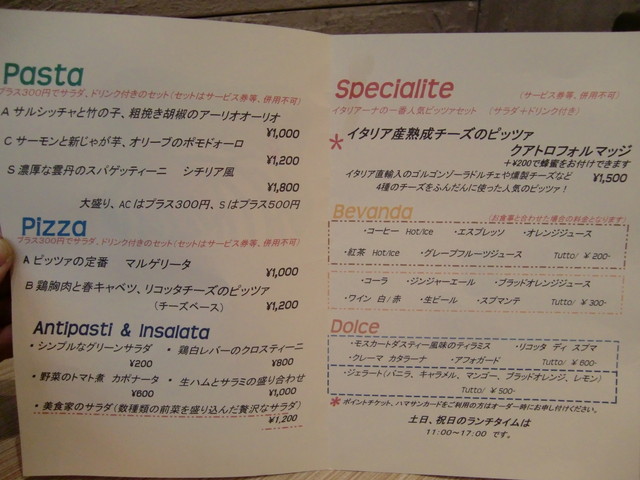 Pasta
プラス300円でサラダ、ドリンク付きのセット(セットはサービス券等、併用不可)
A サルシッチャと竹の子、粗挽き胡椒のアーリオオーリオ
¥1,000
C サーモンと新じゃが芋、オリーブのポモドォーロ
¥1,200
S 濃厚な雲丹のスパゲッティーニ シチリア風
¥1,800
大盛り、ACはプラス300円、Sはプラス500円
Pizza
プラス300円でサラダ、ドリンク付きのセット(セットはサービス券等、併用不可)
A ピッツァの定番 マルゲリータ
¥1,000
B 鶏胸肉と春キャベツ、リコッタチーズのピッツァ
(チーズベース) ¥1,200
Antipasti & Insalata
・シンプルなグリーンサラダ ・鶏白レバーのクロスティーニ
¥200 ¥800
・野菜のトマト煮 カポナータ ・生ハムとサラミの盛り合わせ
¥600 ¥1,000
・美食家のサラダ(数種類の前菜を盛り込んだ贅沢なサラダ)
¥1,200
Specialite (サービス券等、併用不可)
イタリアーナの一番人気ピッツァセット (サラダ+ドリンク付き)
*イタリア産熟成チーズのピッツァ
クアトロフォルマッジ
+¥200で蜂蜜をお付けできます
イタリア直輸入のゴルゴンゾーラドルチェや燻製チーズなど ¥1,500
4種のチーズをふんだんに使った人気のピッツァ!
Bevanda (お食事と合わせた場合の料金となります)
・コーヒー Hot/Ice ・エスプレッソ ・オレンジジュース
・紅茶 Hot/Ice ・グレープフルーツジュース Tutto/ ¥200-
・コーラ ・ジンジャーエール ・ブラッドオレンジジュース
・ワイン 白/赤 ・生ビール ・スプマンテ Tutto/ ¥300-
Dolce
・モスカートダスティー風味のティラミス ・リコッタ ディ スプマ
・クレーマ カタラーナ ・アフォガード Tutto/ ¥600-
・ジェラート(バニラ、キャラメル、マンゴー、ブラッドオレンジ、レモン)
Tutto/ ¥500-
*ポイントチケット、ハマサンカードをご利用の方はオーダー時にお申し付けください。
土日、祝日のランチタイムは
11:00~17:00 です。